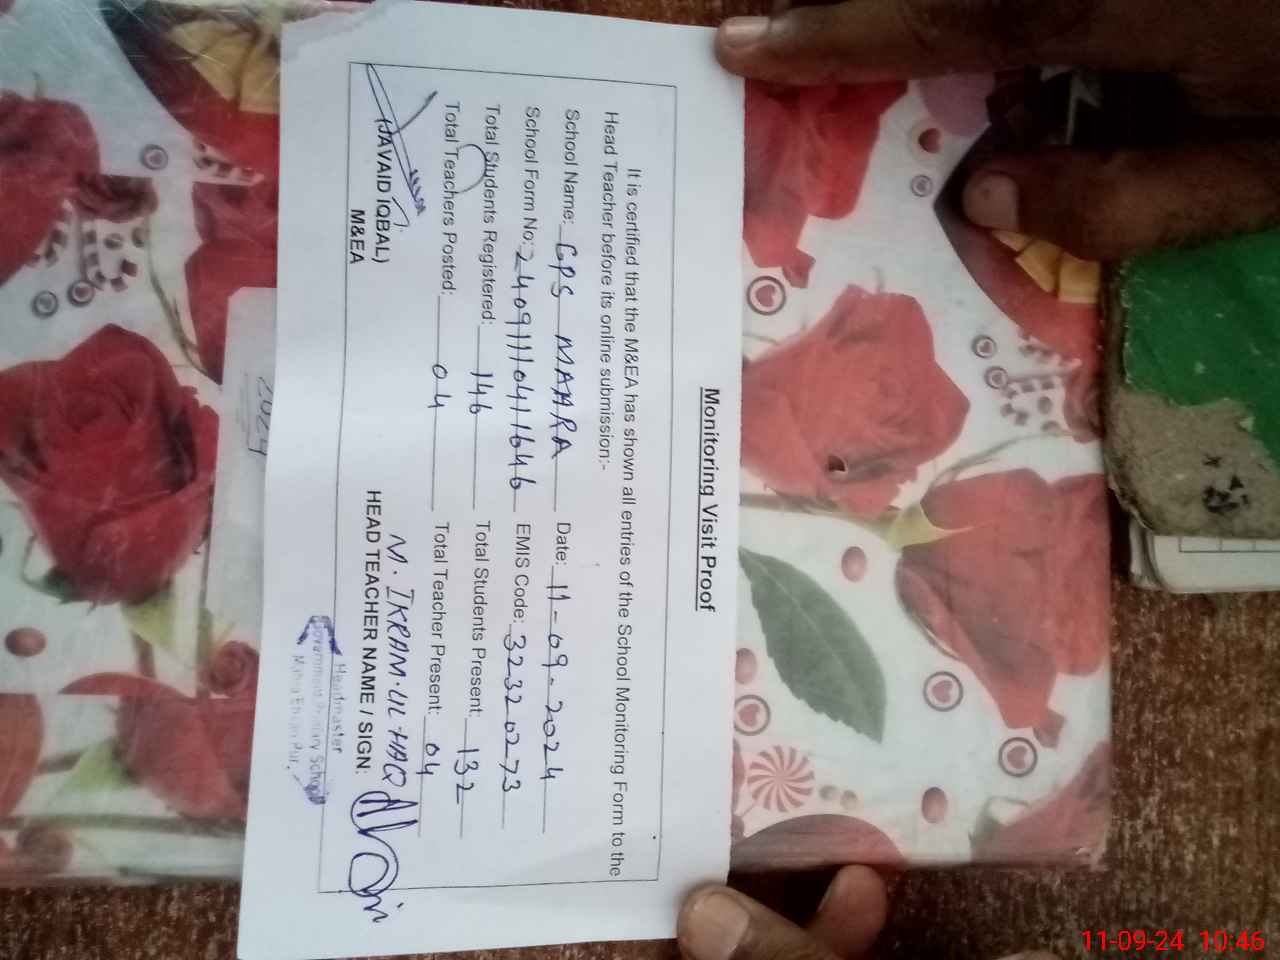 Monitoring Visit Proof
It is certified that the M&EA has shown all entries of the School Monitoring Form to the
Head Teacher before its online submission:-
School Name: GPS MAHRA Date: 11-09-2024
School Form No: 24091110411646 EMIS Code: 32320273
Total Students Registered: 146 Total Students Present: 132
Total Teachers Posted: 04 Total Teacher Present: 04
M. IKRAM.UL HAQ
(JAVAID IQBAL)
M&EA
HEAD TEACHER NAME / SIGN:
Headmaster
Government Primary School
2024
11-09-24 10:46